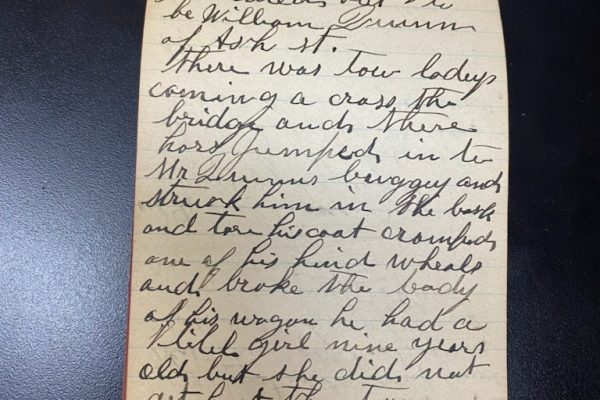 be William Quinn
of Ash st.
there was tow ladeys
coming a cross the
bridge and there
hors jumped in to
Mr Quinns buggey and
struck him in the back
and tore his coat cromped
one of his hind wheals
and broke the body
of his wagon he had a
litel girl nine years
old but she did not